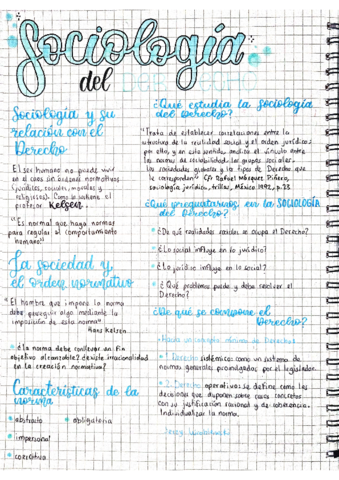 Sociología
del Derecho
Sociología y su
relación con el
Derecho
El ser humano no puede vivir
en el caos sin buscar normativas
(jurídicas, sociales, morales y
religiosas). Como lo sostiene el
profesor Kelsen:
"Es normal que haya normas
para regular el comportamiento
humano."
La sociedad y
el orden normativo
"El hombre que impone la norma
debe perseguir algo mediante la
imposición de esta norma"
Hans Kelsen
¿La norma debe conllevar un fin
objetivo alcanzable? ¿existe irracionalidad
en la creación normativa?
Características de la
norma
abstracto
obligatoria
impersonal
coercitivo
¿Qué estudia la Sociología
del Derecho?
"Trata de establecer correlaciones entre la
estructura de la realidad social y el orden jurídico;
por ello, y en ese sentido, analiza el vínculo entre
las normas de sociabilidad, los grupos sociales,
las sociedades globales y los tipos de Derecho que
le corresponden"
Rafael Márquez Piñero,
sociología jurídica, trillas, México 1992, p. 23.
¿Qué preguntarnos en la SOCIOLOGÍA
del Derecho?
¿De qué realidades sociales se ocupa el Derecho?
¿Lo social influye en lo jurídico?
¿Lo jurídico influye en lo social?
¿Qué problemas puede y debe resolver el
Derecho?
¿De que se compone el
Derecho?
1. Derecho sistémico: como un sistema de
normas generales promulgadas por el legislador.
2. Derecho operativo: se define como las
decisiones que disponen sobre casos concretos
con su justificación racional y de coherencia.
Individualizar la norma.